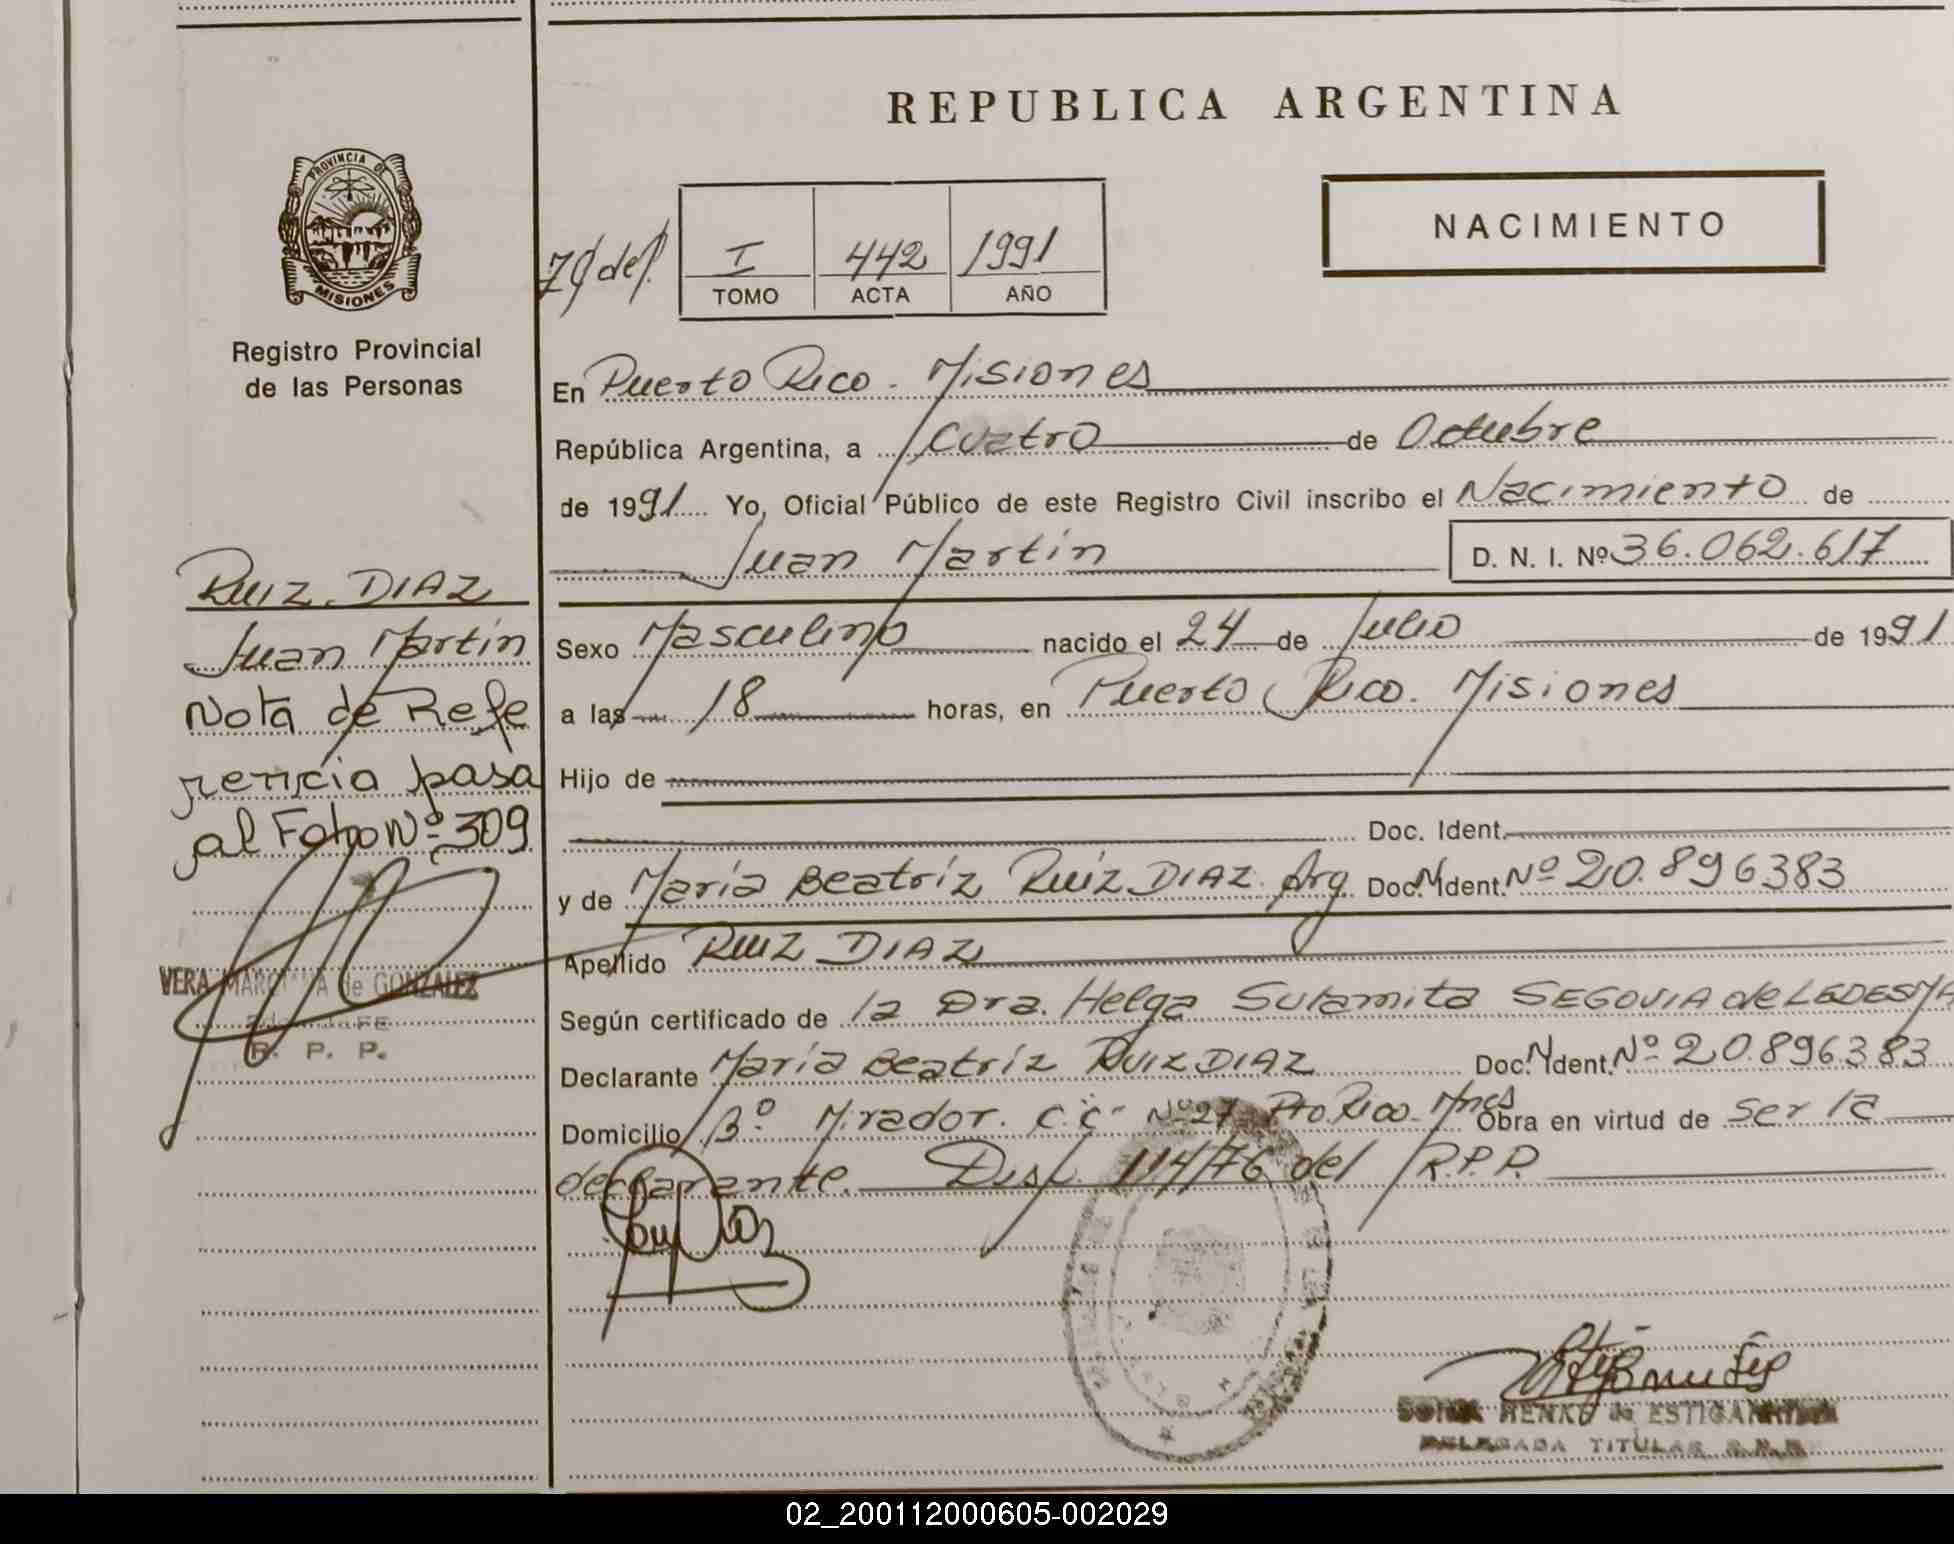 REPUBLICA ARGENTINA
NACIMIENTO
PROVINCIA DE
MISIONES
Registro Provincial
de las Personas
I 442 1991
TOMO ACTA AÑO
En Puerto Rico. Misiones
República Argentina, a Cuatro de Octubre
de 1991 Yo, Oficial Público de este Registro Civil inscribo el Nacimiento de
Juan Martín D. N. I. Nº 36.062.617
Sexo Masculino nacido el 24 de Julio de 1991
a las 18 horas, en Puerto Rico. Misiones
Hijo de
Doc. Ident.
y de María Beatríz Ruiz DIAZ. Arg. Doc. Ident. Nº 20.896383
Apellido RUIZ DIAZ
Según certificado de la Dra. Helga Sulamita SEGOVIA de LEDESMA
Declarante María Beatríz RUIZ DIAZ Doc. Ident. Nº 20.896.383
Domicilio Bº Mirador. C.C. Nº 27 Pto. Rico. Mnes Obra en virtud de ser la
declarante. Disp. 114/76 del R.P.P.
RUIZ. DIAZ
Juan Martín
Nota de Refe
rencia pasa
al Folio Nº 309
VERA de GONZALEZ
R. P. P.
SONIA HENKE de
DELEGADA TITULAR
02_200112000605-002029